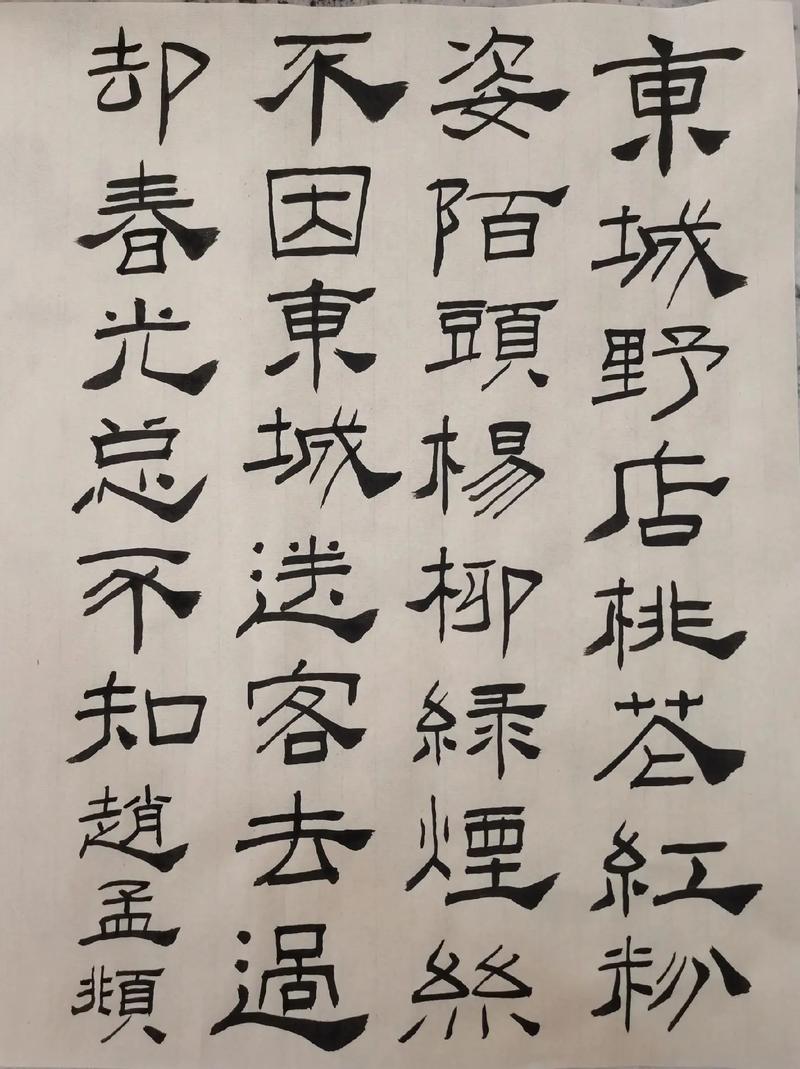 東城野店桃花紅粉
姿陌頭楊柳緑煙絲
不因東城送客去過
却春光总不知趙孟頫